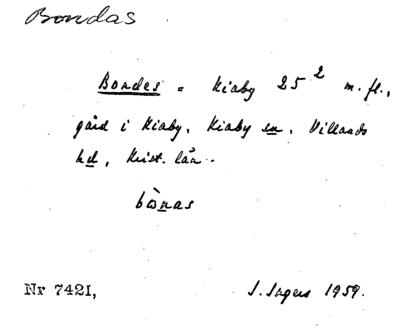 Bondas
Bondes = Kiaby 25² m.fl.,
gård i Kiaby, Kiaby sn, Villands
hd, Krist. län.
bònas
Nr 7421, J. Ingers 1959.